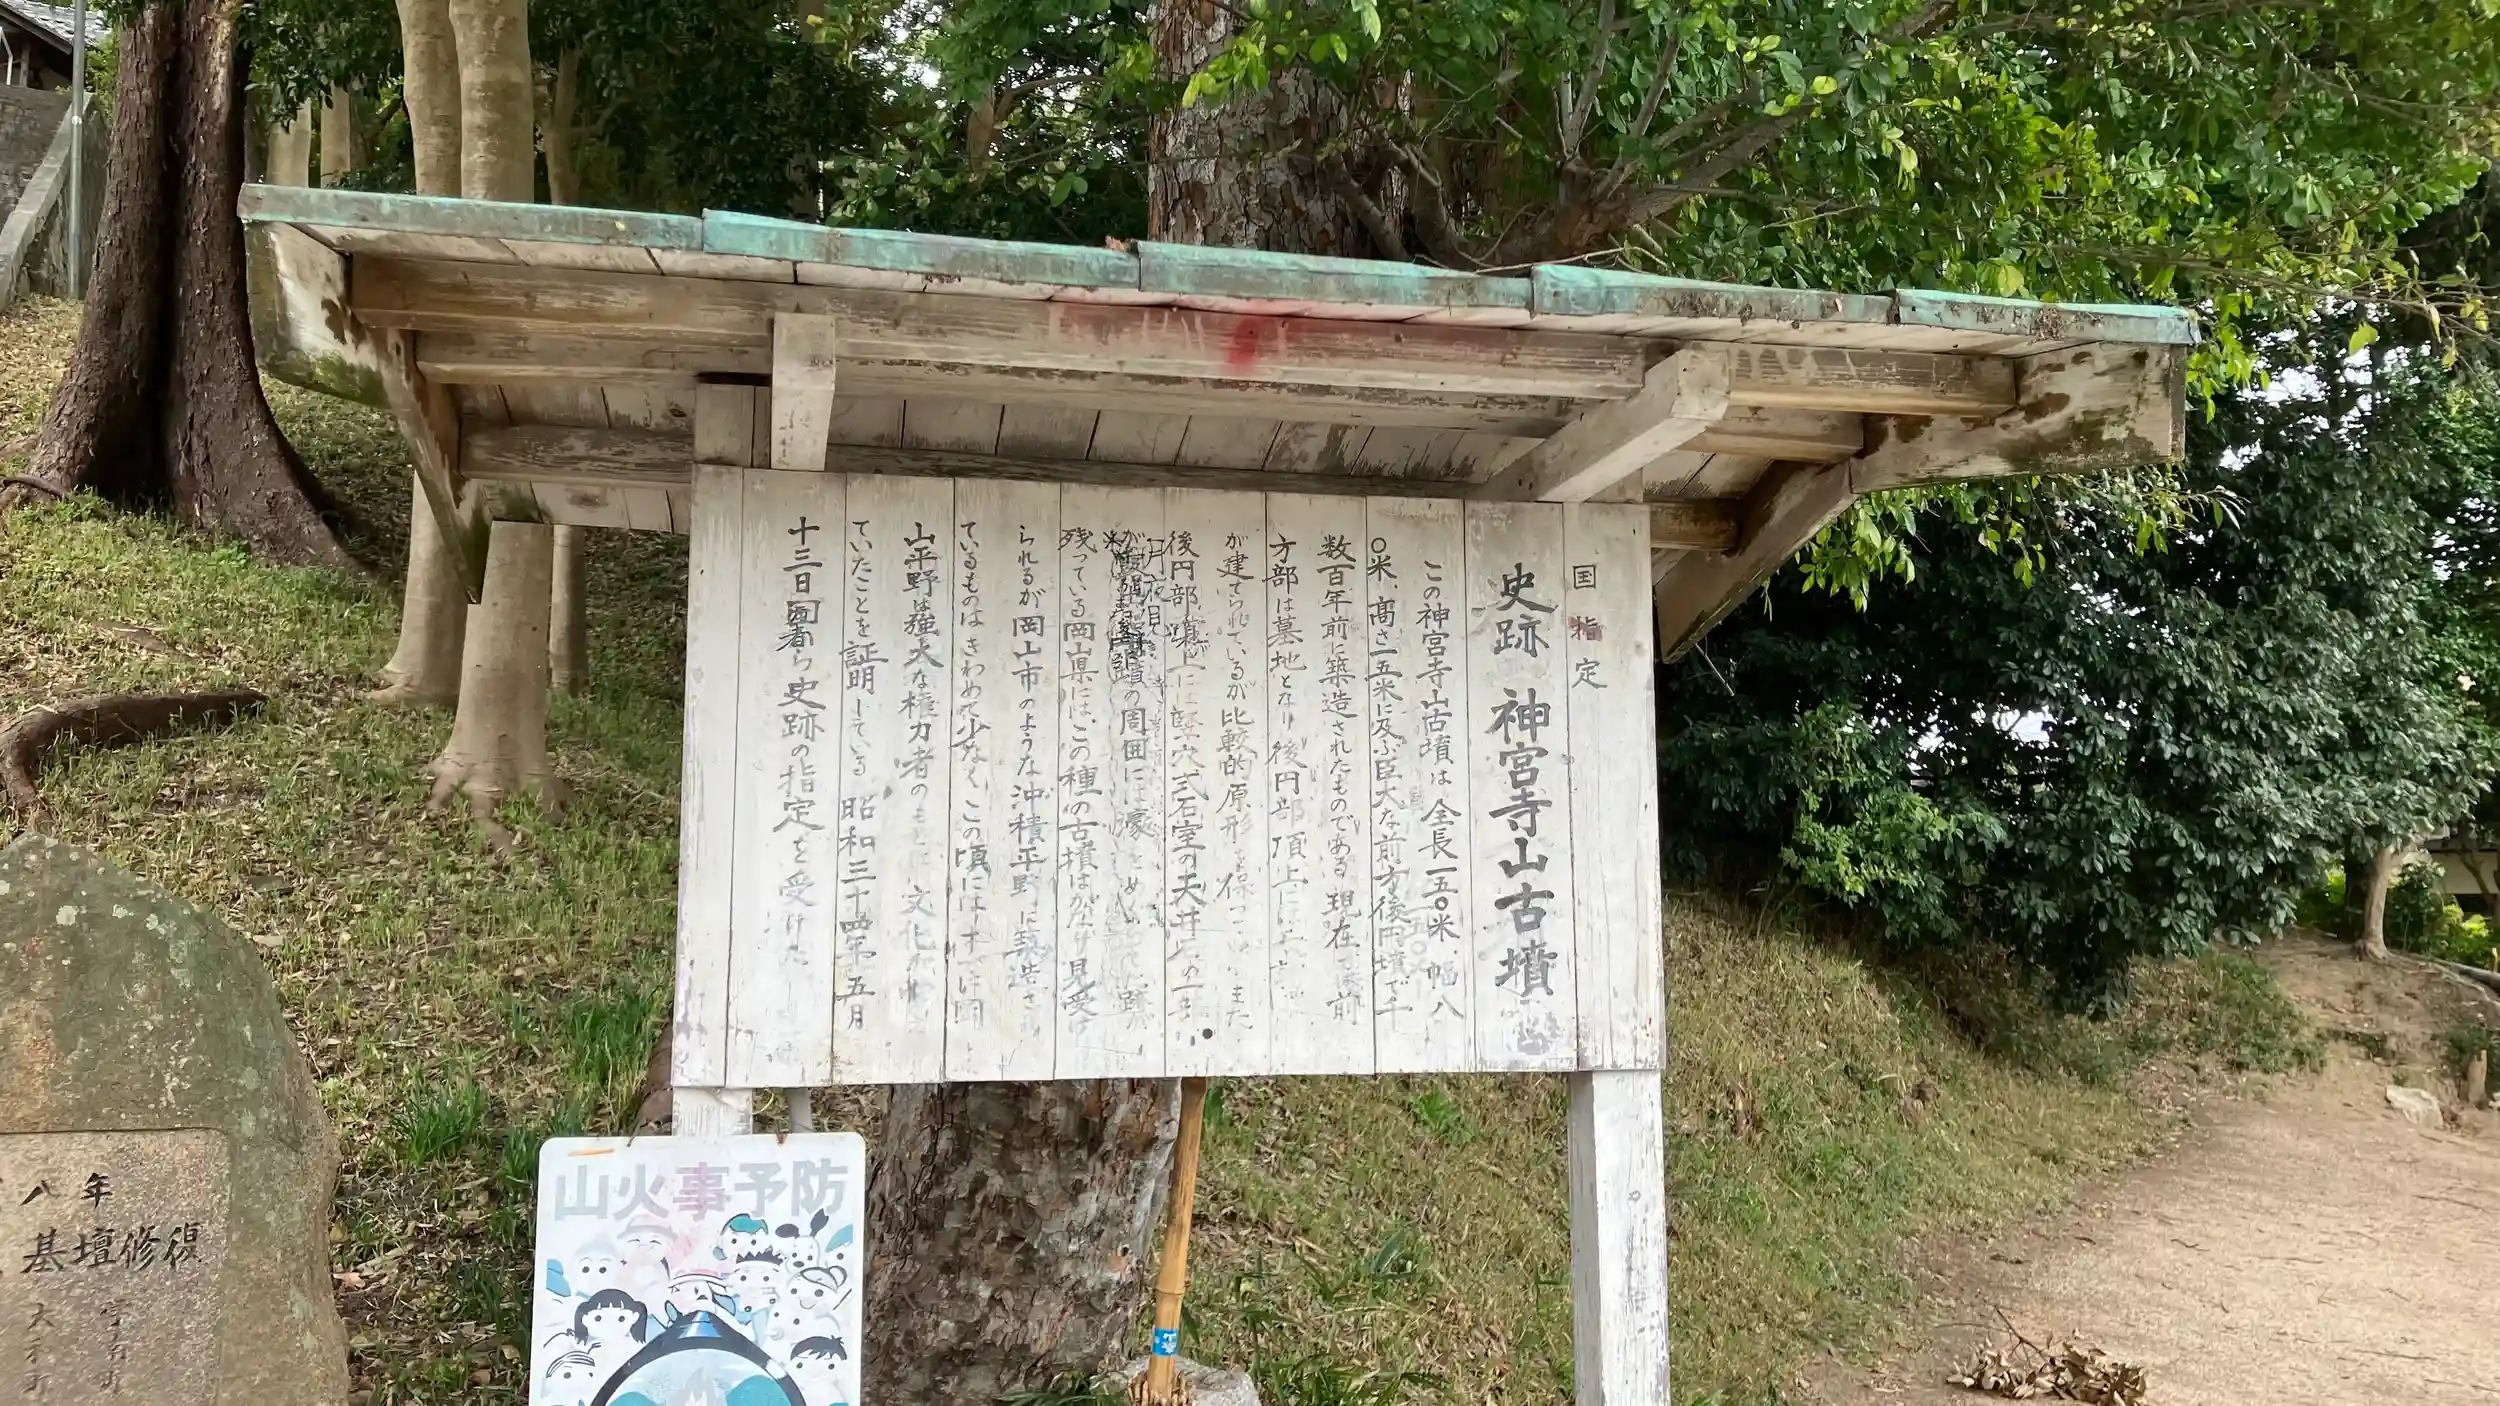 国指定
史跡 神宮寺山古墳
この神宮寺山古墳は全長一五〇米、幅八
〇米、高さ一五米に及ぶ巨大な前方後円墳で千
数百年前に築造されたものである 現在では前
方部は墓地となり後円部頂上には
が建てられているが比較的原形を保って
後円部墳上には竪穴式石室の天井石の一部
の周囲には濠をめぐ 跡が
残っている岡山県にはこの種の古墳はかなり見受け
られるが岡山市のような沖積平野に築造され
ているものはきわめて少なくこの頃にはすでに岡
山平野は強大な権力者のもとに文化が
ていたことを証明している 昭和三十四年五月
十三日国から史跡の指定を受けた
山火事予防
八年
基壇修復